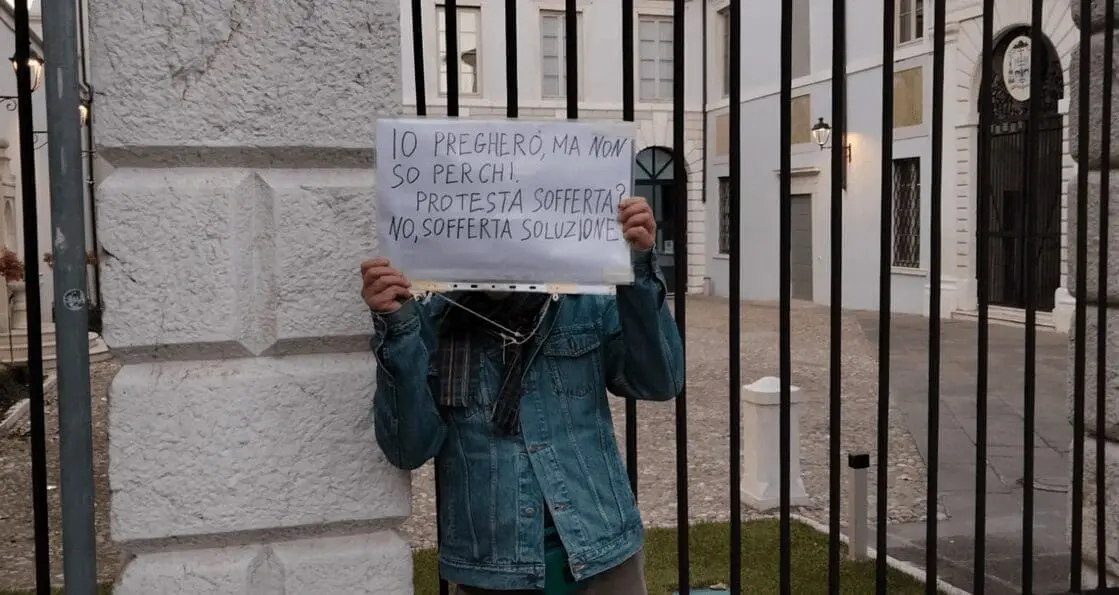 IO PREGHERÒ, MA NON
SO PER CHI.
PROTESTA SOFFERTA?
NO, SOFFERTA SOLUZIONE.